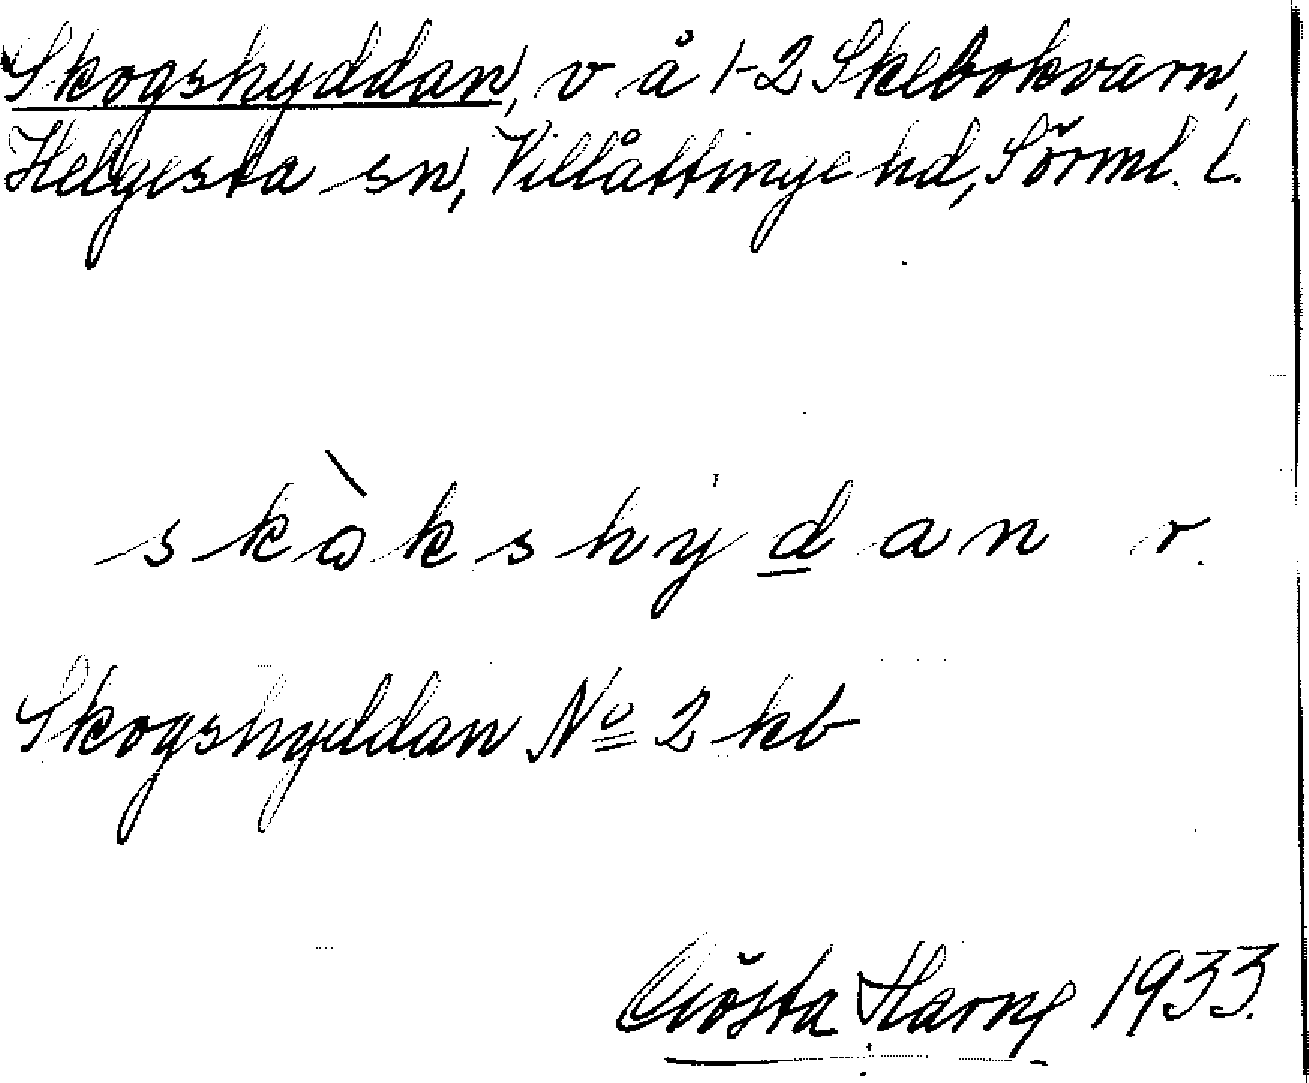 Skogshyddan, v å 1-2 Skebokvarn,
Helgesta sn, Villåttinge hd, Sörml. l.
skòkshydan r.
Skogshyddan No 2 kb
Gösta 1933.